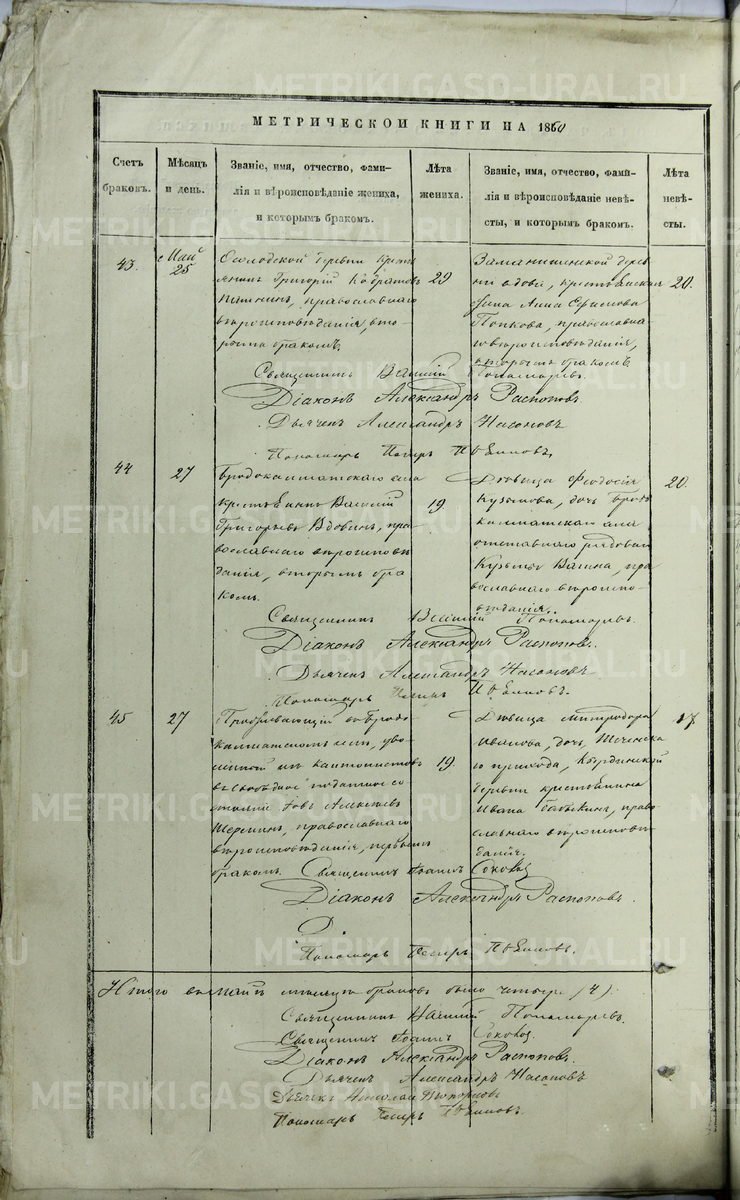 МЕТРИЧЕСКОЙ КНИГИ НА 1860
Счетъ браковъ.
Мѣсяцъ и день.
Званіе, имя, отчество, фами-
лія и вѣроисповѣданіе жениха,
и которымъ бракомъ.
Лѣта жениха.
Званіе, имя, отчество, фами-
лія и вѣроисповѣданіе невѣ-
сты, и которымъ бракомъ.
Лѣта невѣ-
сты.
43.
Май
25
деревни крестья
янинъ Григорій
православнаго
вѣроисповѣданія, вто-
рымъ бракомъ.
29
дерев
ни вдова, крестьянская
жена Анна Ефимова
Попкова, православна
го вѣроисповѣданія,
вторымъ бракомъ
20.
Священникъ Василій Пономаревъ.
Діаконъ Александръ Распоповъ
Дьячекъ Александръ Насоновъ
Пономарь Петръ
44
27
Бродокалматскаго села
крестьянинъ Василій
Григорьевъ Вдовинъ, пра-
вославнаго вѣроисповѣ
данія, вторымъ бра
комъ.
19.
Дѣвица Феодосія
Кузьмова, дочь Бродо
калматскаго села
отставнаго рядоваго
Кузьмы Вагина, пра
вославнаго вѣроиспо-
вѣданія.
20.
Священникъ Василій Пономаревъ.
Діаконъ Александръ Распоповъ.
Дьячекъ Александръ Насоновъ
Пономарь Петръ
45
27
Проживающій въ Бродо
калматскомъ селѣ, уво
ленный изъ кантонистовъ
въ свободное податное со
стояніе Іовъ Алексѣевъ
православнаго
вѣроисповѣданія, первымъ
бракомъ.
19.
Дѣвица Митродора
Иванова, дочь
го прихода,
деревни крестьянина
Ивана право
славнаго вѣроисповѣ
данія.
17.
Священникъ Іоаннъ
Діаконъ Александръ Распоповъ.
Пономарь Петръ
Итого въ маѣ мѣсяцѣ браковъ было четыре (4).
Священникъ Василій Пономаревъ.
Священникъ Іоаннъ
Діаконъ Александръ Распоповъ.
Дьячекъ Александръ Насоновъ
Дьячекъ Николай
Пономарь Петръ
METRIKI.GASO-URAL.RU